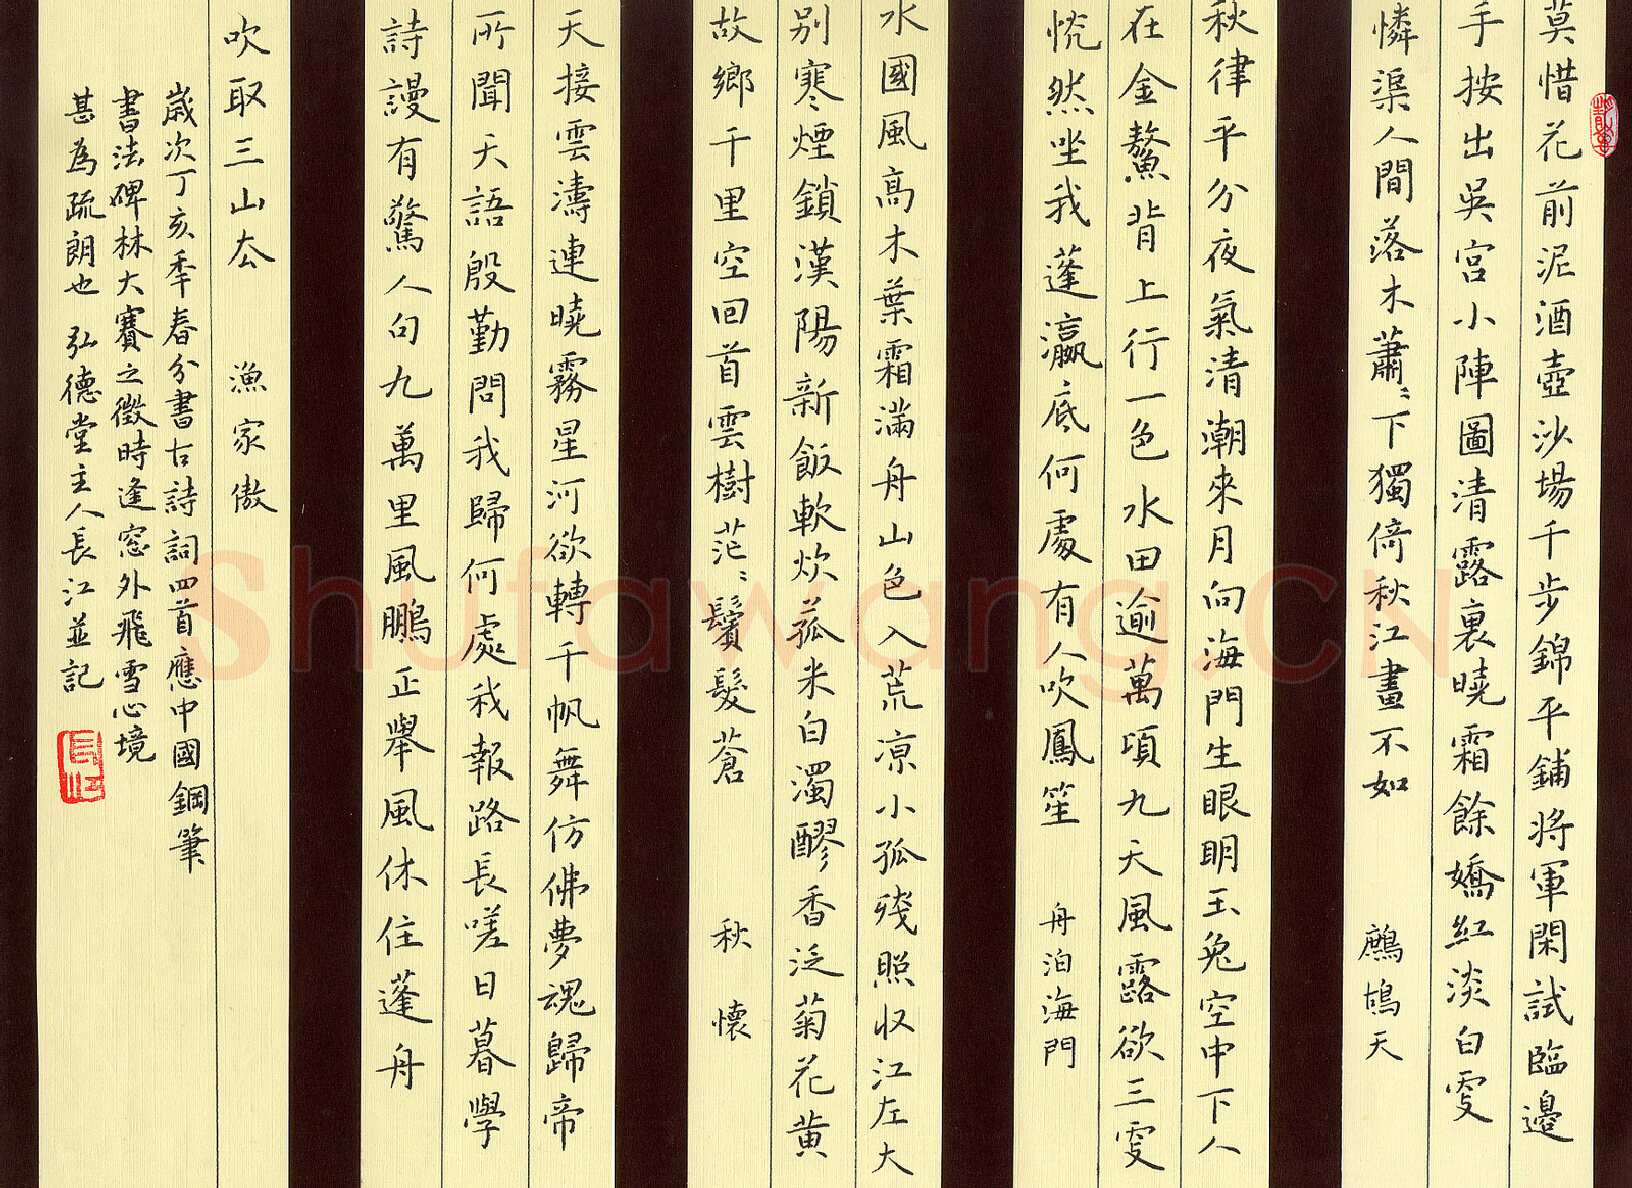 莫惜花前泥酒壺沙場千步錦平鋪將軍閑試臨邊
手按出吳宮小陣圖清露裏曉霜餘嬌紅淡白更
憐渠人間落木蕭〻下獨倚秋江畫不如 鷓鴣天
秋律平分夜氣清潮來月向海門生眼明玉兔空中下人
在金鰲背上行一色水田逾萬頃九天風露欲三更
恍然坐我蓬瀛底何處有人吹鳳笙 舟泊海門
水國風高木葉霜滿舟山色入荒凉小孤殘照收江左大
别寒煙鎖漢陽新飯軟炊菰米白濁醪香泛菊花黄
故鄉千里空回首雲樹茫〻鬢髮蒼 秋懷
天接雲濤連曉霧星河欲轉千帆舞仿佛夢魂歸帝
所聞天語殷勤問我歸何處我報路長嗟日暮學
詩謾有驚人句九萬里風鵬正舉風休住蓬舟
吹取三山去 漁家傲
歲次丁亥季春分書古詩詞四首應中國鋼筆
書法碑林大賽之徵時逢窓外飛雪心境
甚為疏朗也 弘德堂主人長江並記
長江
Shufawang.CN